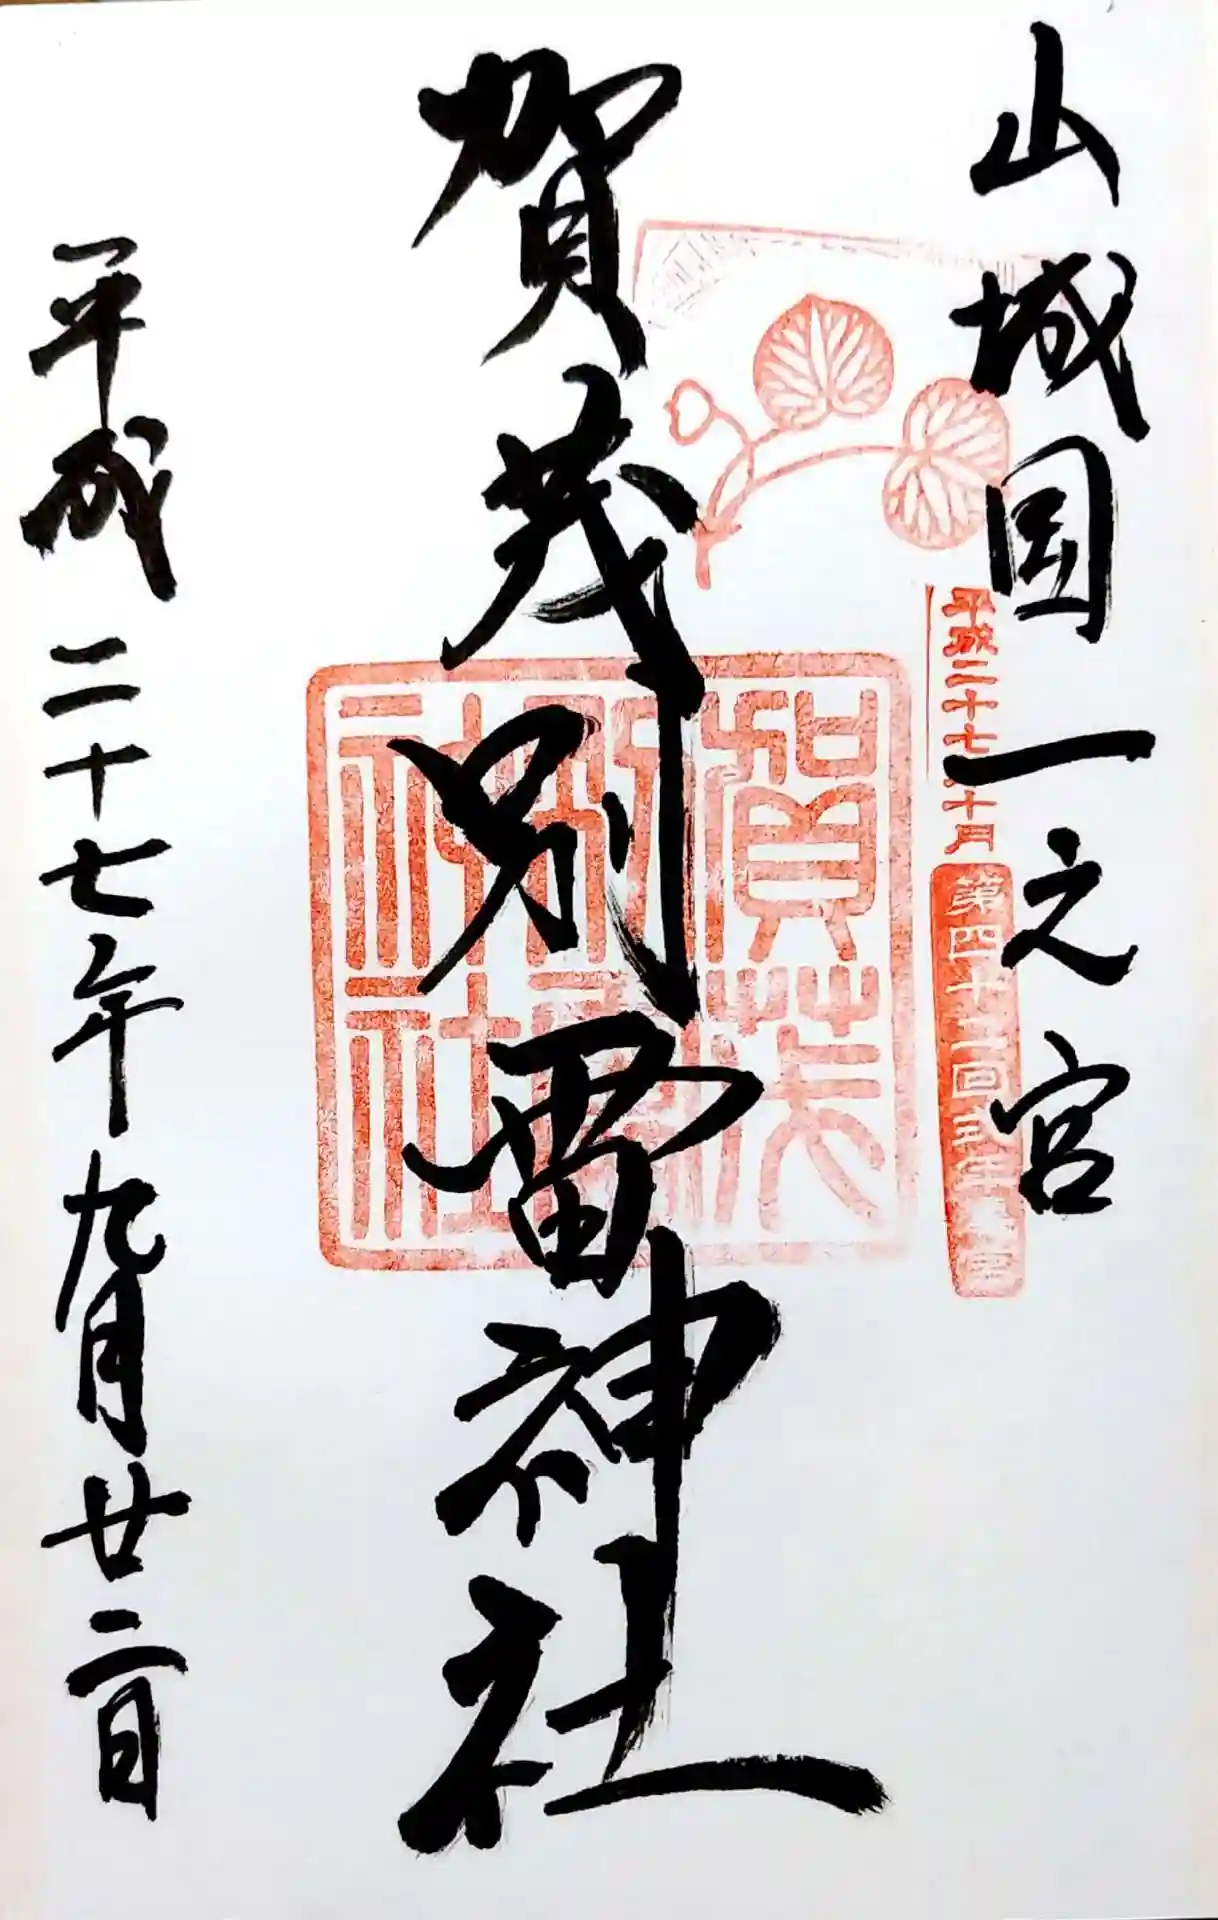 山城国一之宮
平成二十七年十月
第四十二回式年遷宮
賀茂別雷神社
賀茂
別雷
神社
平成二十七年九月廿二日